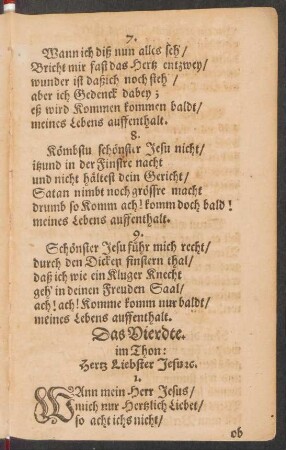 7.
Wann ich diß nun alles seh /
Bricht mir fast das Hertz entzwey /
wunder ist daßich noch steh /
aber ich Gedenck dabey ;
eß wird Kommen kommen baldt /
meines Lebens auffenthalt.
8.
Kömbstu schönster Jesu nicht /
itzund in der Finstre nacht
und nicht hältest dein Gericht /
Satan nimbt noch grössre macht
drumb so Komm ach ! komm doch bald !
meines Lebens auffenthalt.
9.
Schönster Jesu führ mich recht /
durch den Dicken finstern thal /
daß ich wie ein Kluger Knecht
geh' in deinen Freuden Saal /
ach ! ach ! Komme komm nur baldt /
meines Lebens auffenthalt.
Das Vierdte.
im Thon:
Hertz Liebster Jesu ꝛc.
1.
WAnn mein Herr Jesus /
mich nur Hertzlich Liebet /
so acht ichs nicht /
ob